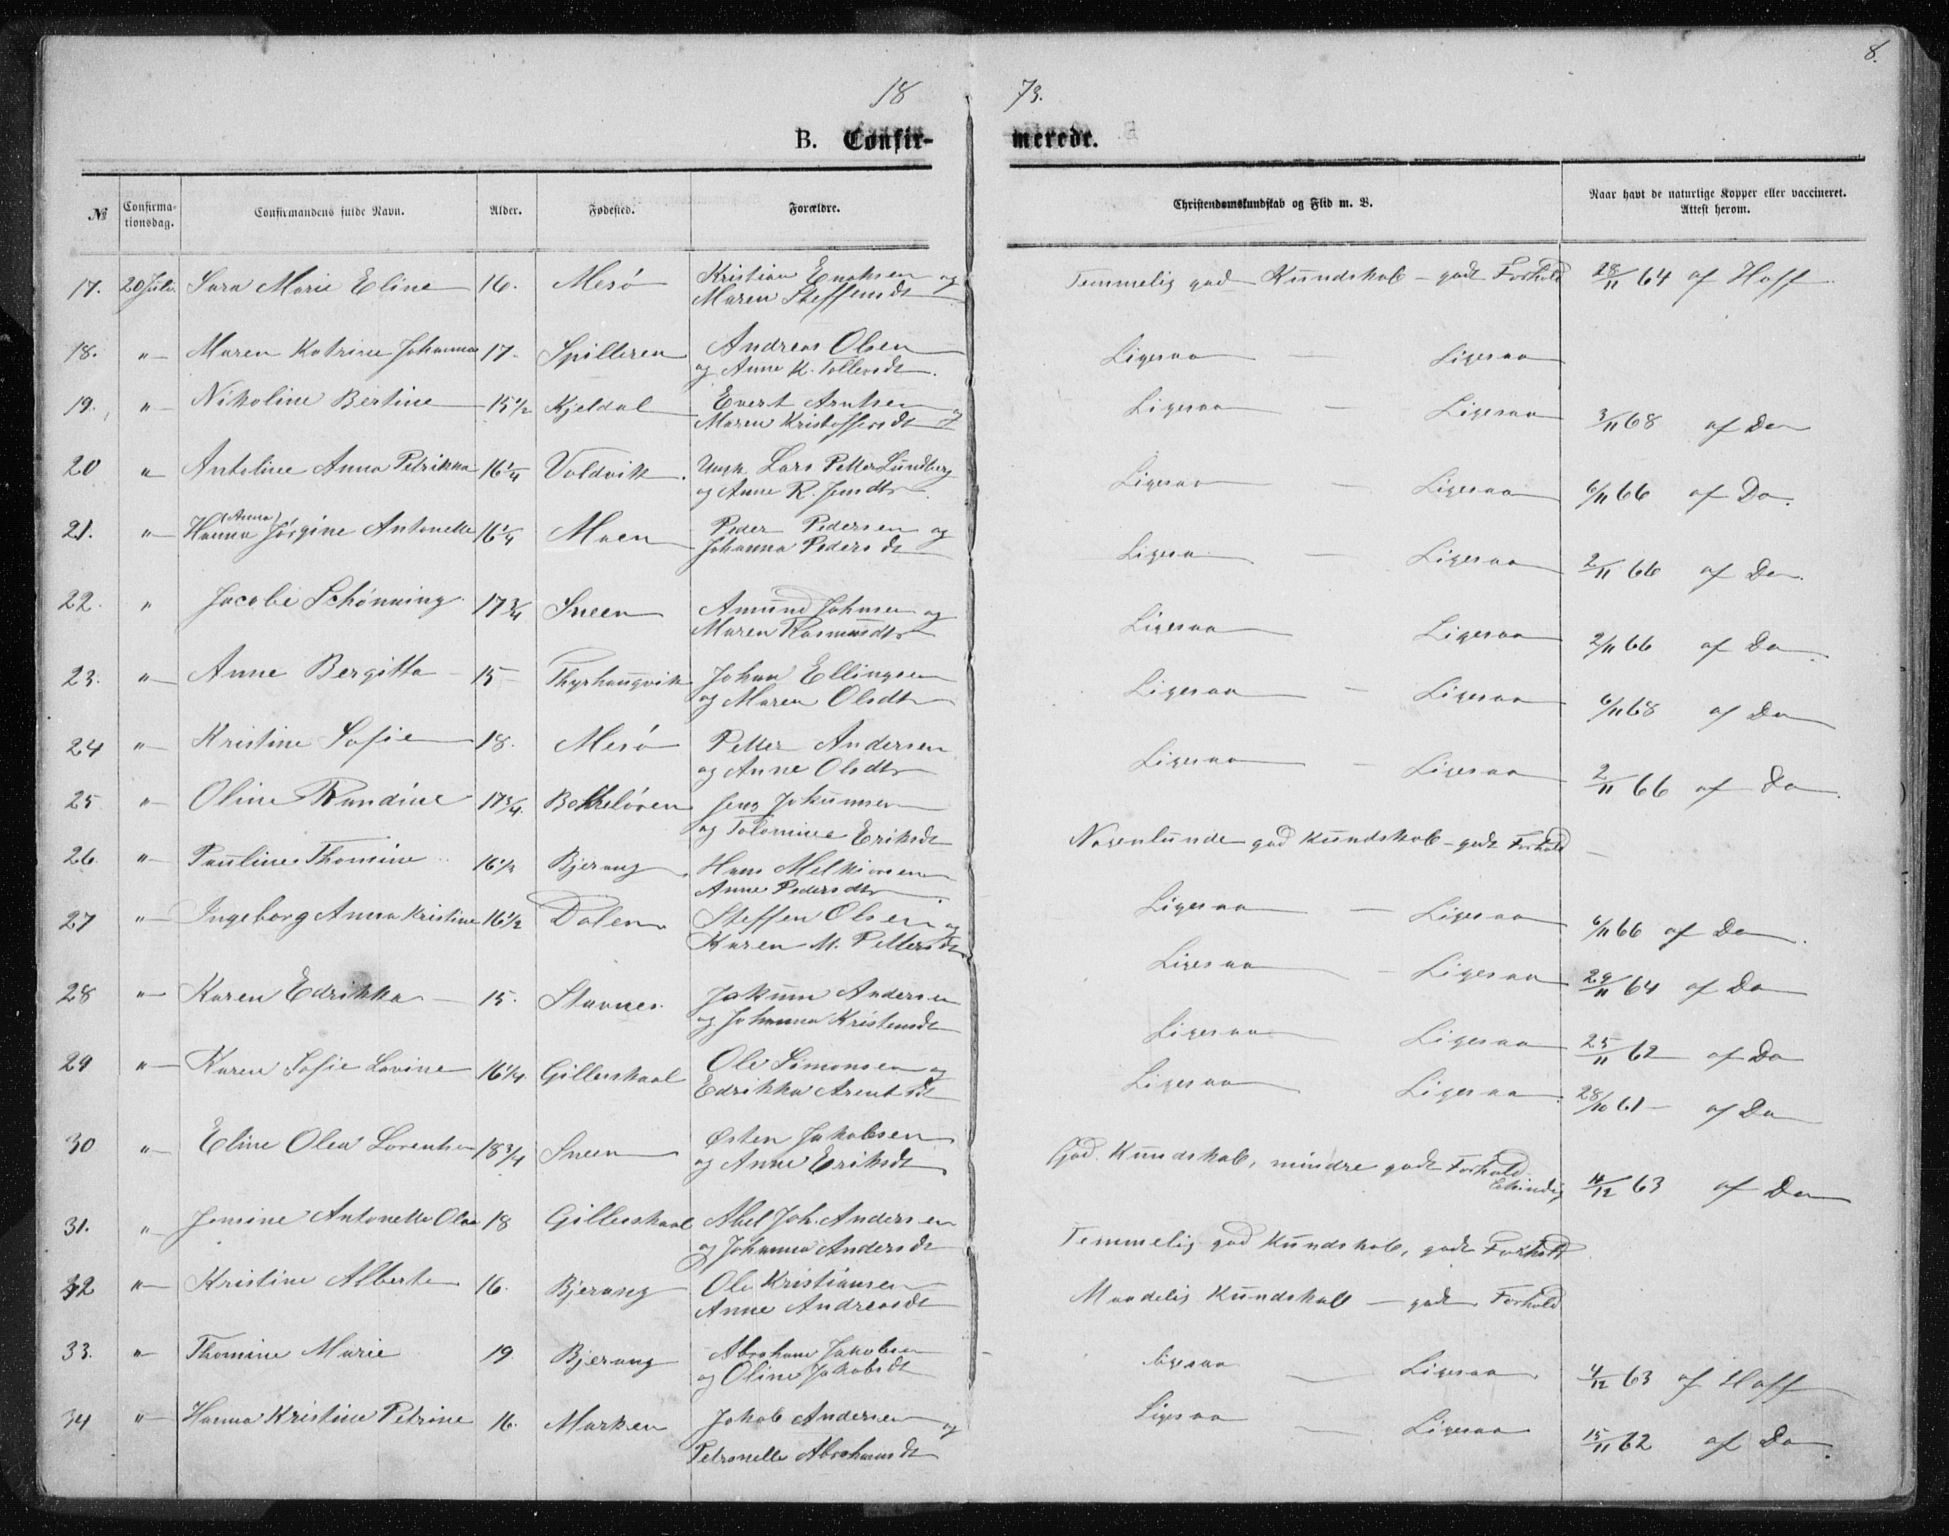 8.
18 73.
B. Confir- merede.
№ Confirma-tionsdag. Confirmandens fulde Navn. Alder. Fødested. Forældre. Christendomskundskab og Flid m. V. Naar havt de naturlige Kopper eller vaccineret. Attest herom.
17. 20 Juli. Sara Marie Eline 16. Mesø Kristian Enoksen og Temmelig god Kundskab – godt Forhold 28/11 64 af Hoff
Maren Steffensdt
18. " Maren Katrine Johanna 17. Spilderen Andreas Olsen Ligesaa – Ligesaa
og Anne K. Tollevsdt.
19. " Nikoline Bertine 15 1/2 Kjeldal Evert Arntsen Ligesaa – Ligesaa 3/11 68 af Do
Maren Kristoffersdt
20 " Antoline Anna Petrikka 16 1/4 Valdvik Ungk. Lars Petter Lundberg Ligesaa – Ligesaa 6/11 66 af Do.
og Anne R. Jensdtr
21. " Hanna (Anna) Jørgine Antonette 16 1/4 Moen Peder Pedersen og Ligesaa – Ligesaa 2/11 66 af Do.
Johanna Pedersdt
22. " Jacobi Schønning 17 3/4 Sneen Amund Johnsen og Ligesaa Ligesaa 2/11 66 af Do
Maren Rasmusdtr
23. " Anne Bergitta 15 Thyrhaugvik Johan Ellingsen Ligesaa – Ligesaa 6/11 68 af Do
og Maren Olsdtr
24 " Kristine Sofie 18. Mesø Petter Andersen Ligesaa – Ligesaa 2/11 66 af Do.
og Anne Olsdtr
25 " Oline Randine 17 3/4. Jens Jokumsen Nogenlunde god Kundskab – godt Forhold –
og Tolomine Eriksdt
26 " Pauline Thomine 16 1/2 Bjerang Hans Melkiorsen Ligesaa – Ligesaa 6/11 66 af Do.
Anne Pedersdtr
27 " Ingeborg Anna Kristine 16 1/2 Dalen Steffen Olsen og Ligesaa – Ligesaa 29/11 64 af Do
Karen M. Pettersdt
28 " Karen Edrikka 15. Stavnes Jakum Andersen Ligesaa Ligesaa 25/11 62 af Do
og Johanna Kristensdt
29 " Karen Sofie Lovine 16 1/4. Gilleskaal Ole Simonsen og Ligesaa Ligesaa 28/10 61 – af Do
Edrikka Arentsdt
30 " Eline Olea Lorentse 18 3/4 Sneen Østen Jakobsen God Kundskab, mindre godt Forhold 14/12 63 af Do
og Anne Eriksdt
31. " Jensine Antonette Olea 18 Gilleskaal Abel Joh. Andersen Temmelig god Kundskab, godt Forhold.
og Johanna Andersdt
32 " Kristine Alberte 16. Bjerang Ole Kristiansen Maadelig Kundskab – godt Forhold
Anne Andreasdt
33. " Thomine Marie 19 Bjerang Abraham Jakobsen – ligesaa – Ligesaa 4/12 63 af Hoff
og Oline Jakobsdt
34 " Hanna Kristine Petrine 16. Marken Jakob Andersen og Ligesaa – Ligesaa 15/11 62 af Do.
Petronelle Abrahamsdt